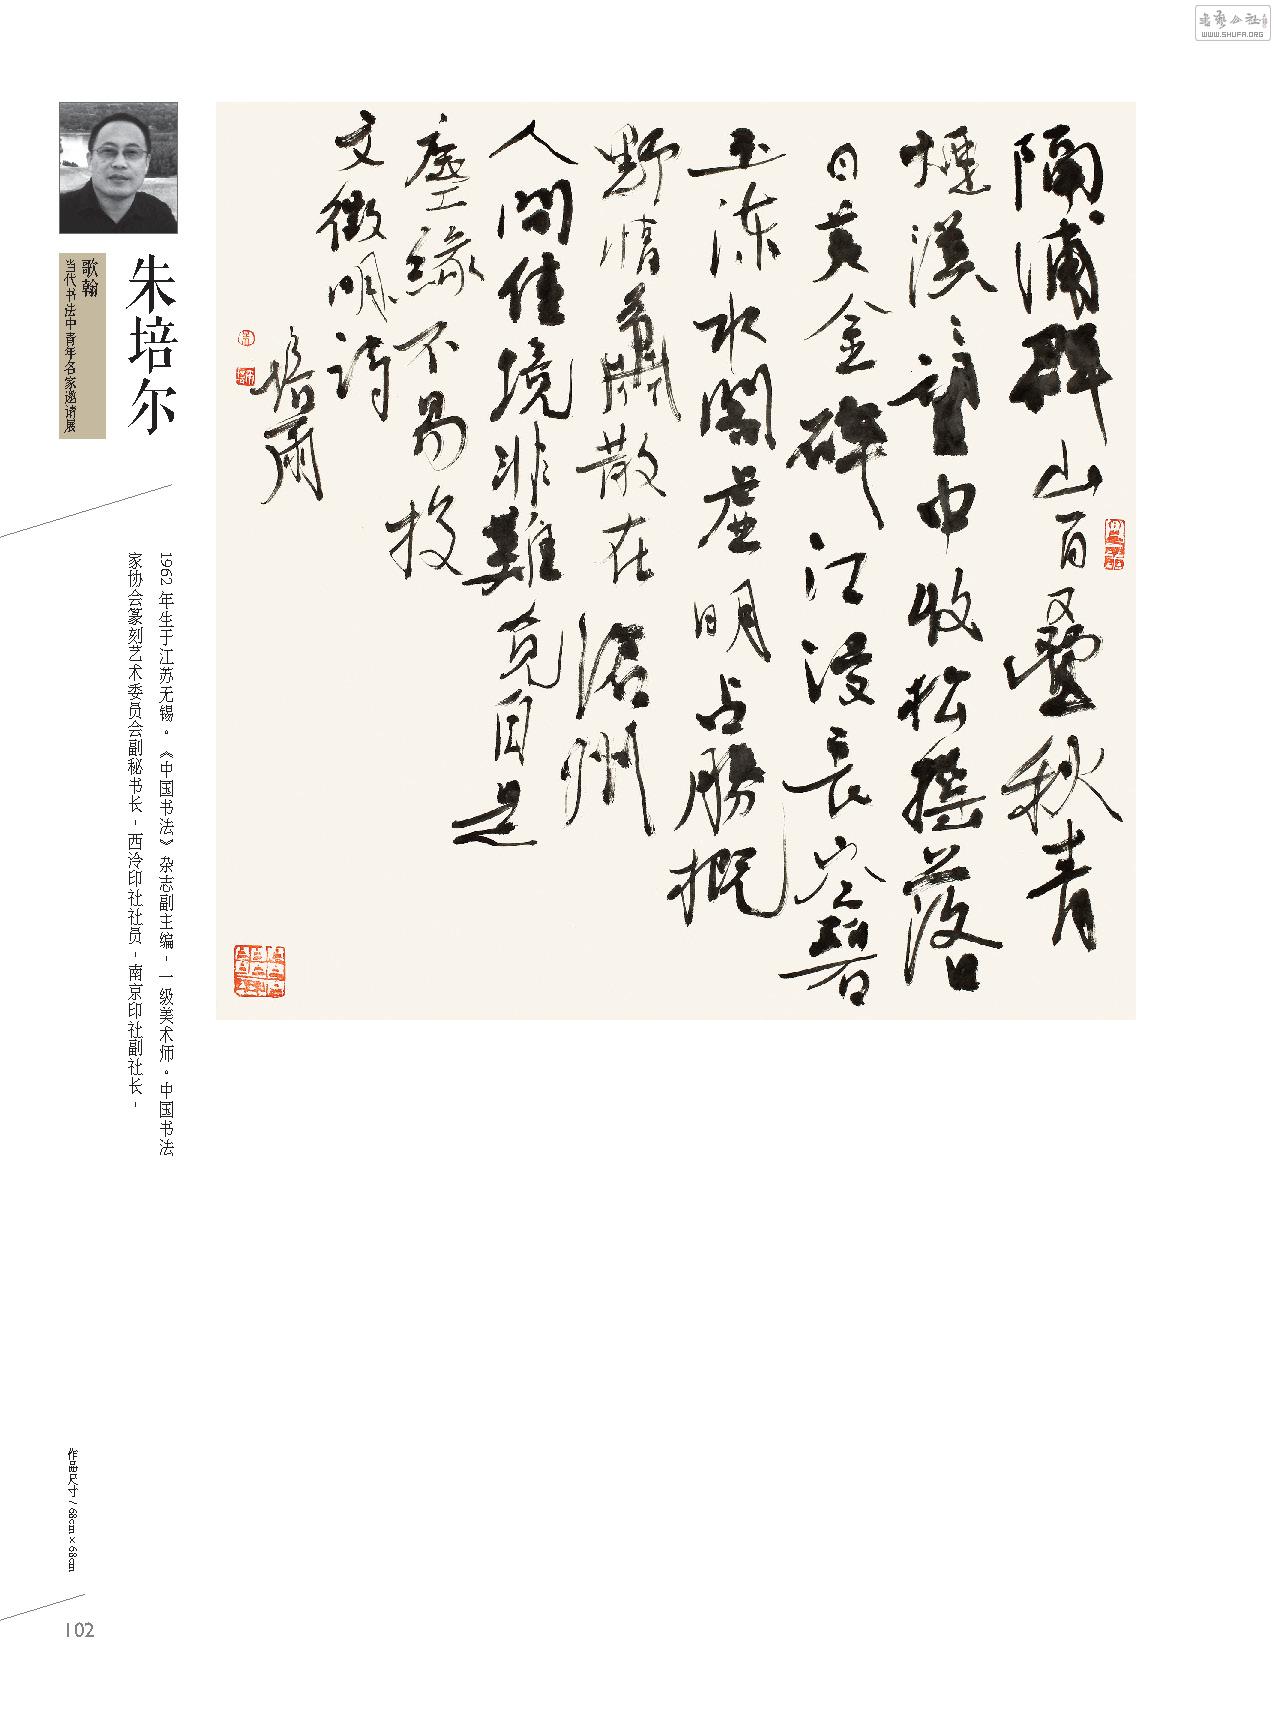 WWW.SHUFA.ORG
朱培尔
歌翰
当代书法中青年名家邀请展
1962年生于江苏无锡。《中国书法》杂志副主编，一级美术师。中国书法
家协会篆刻艺术委员会副秘书长，西泠印社社员，南京印社副社长。
隔浦群山百叠秋青
烟溪〻望中收松摇落
日黄金碎江浸长空碧
玉冻水阁虚明占胜概
野情萧散在沧州
人间佳境非难觅自是
尘缘不易投
文徵明诗
培尔
作品尺寸/68cm×68cm
102